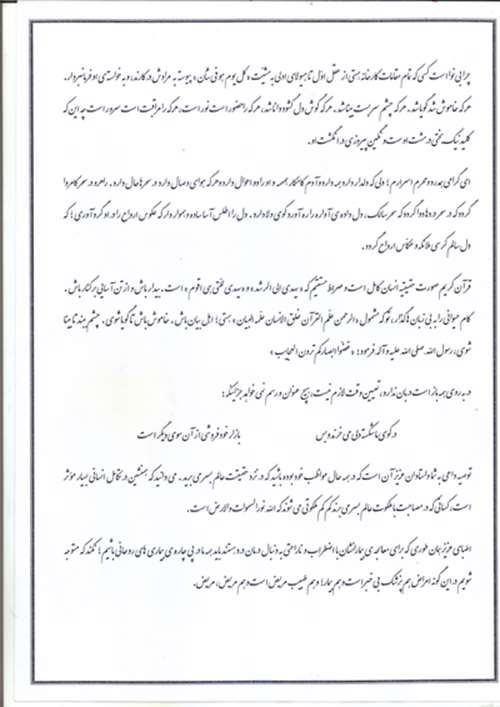 چرا بی نوا است کسی که تمام مقامات کارخانه هستی از عقل اول تا هیولای اولی به مشیت «کل یوم هو فی شان» پیوسته به مرادش در کارند، و به خواسته ی او فرمانبردار.
هر که خاموش شد گویا شد. هر که چشم سر بست بینا شد، هر که گوش دل گشود دانا شد، هر که را حضور است نور است، هر که را مراقبت است سرور است چه این که
کلید نیک بختی در مشت اوست و نگین پیروزی در انگشت او.
ای گرامی همدرد و محرم اسرارم؛ ولی که دلدار دارد همه دارد و آدم کامکار همه و او را دو احوال دارد و هر که هوای وصال دارد در سحرها حال دارد. راهرو در سحر کامروا
گردد که در سحر دهد واگردد که سحر سالک، دل داده ی آواره را ره آورد کوی ولا دارد. دل را اطلس آسا ساده و هموار دار که عکوس ارواح را در او گرد آوری؛ که
دل سالم کرسی ملائکه و عکاس ارواح گردد.
قرآن کریم صورت حقیقیه انسان کامل است و صراط مستقیم که «یهدی الی الرشد» و «یهدی للتی هی اقوم» است. بیدار باش و از تن آسایی بر کنار باش.
کام حیوانی را به بی زبان ها گذار، تو که مشمول «الرحمن علم القرآن خلق الانسان علمه البیان» هستی؛ اهل بیان باش. خاموش باش تا گویا شوی. چشم ببند تا بینا
شوی، رسول الله صلی الله علیه و آله فرمود: «غضوا ابصارکم ترون العجایب»
در به روی همه باز است دربان ندارد، تعیین وقت لازم نیست، هیچ عنوان و رسم نمی خواهد جز اینکه:
در کوی ما شکسته دلی می خرند و بس بازار خود فروشی از آن سوی دیگر است
توصیه داعی به شما دلستاوان عزیز آن است که در همه حال مواظب خود بوده باشید که در نزد حقیقت عالم بسر می برید. می دانید که همنشین در تکامل انسانی بسیار مؤثر
است، کسانی که در مصاحبت با ملکوت عالم بسر می برند کم کم ملکوتی می شوند که الله نور السموات و الارض است.
اطبای عزیز همان طوری که برای معالجه ی بیمارانشان با اضطراب و ناراحتی به دنبال درمان درد هستند باید همه ما در پی چاره ی بیماری های روحانی باشیم؛ نکند که متوجه
شویم در این گونه امراض هم پزشک بی خبر است و هم بیمار؛ و هم طبیب مریض است و هم مریض، مریض.